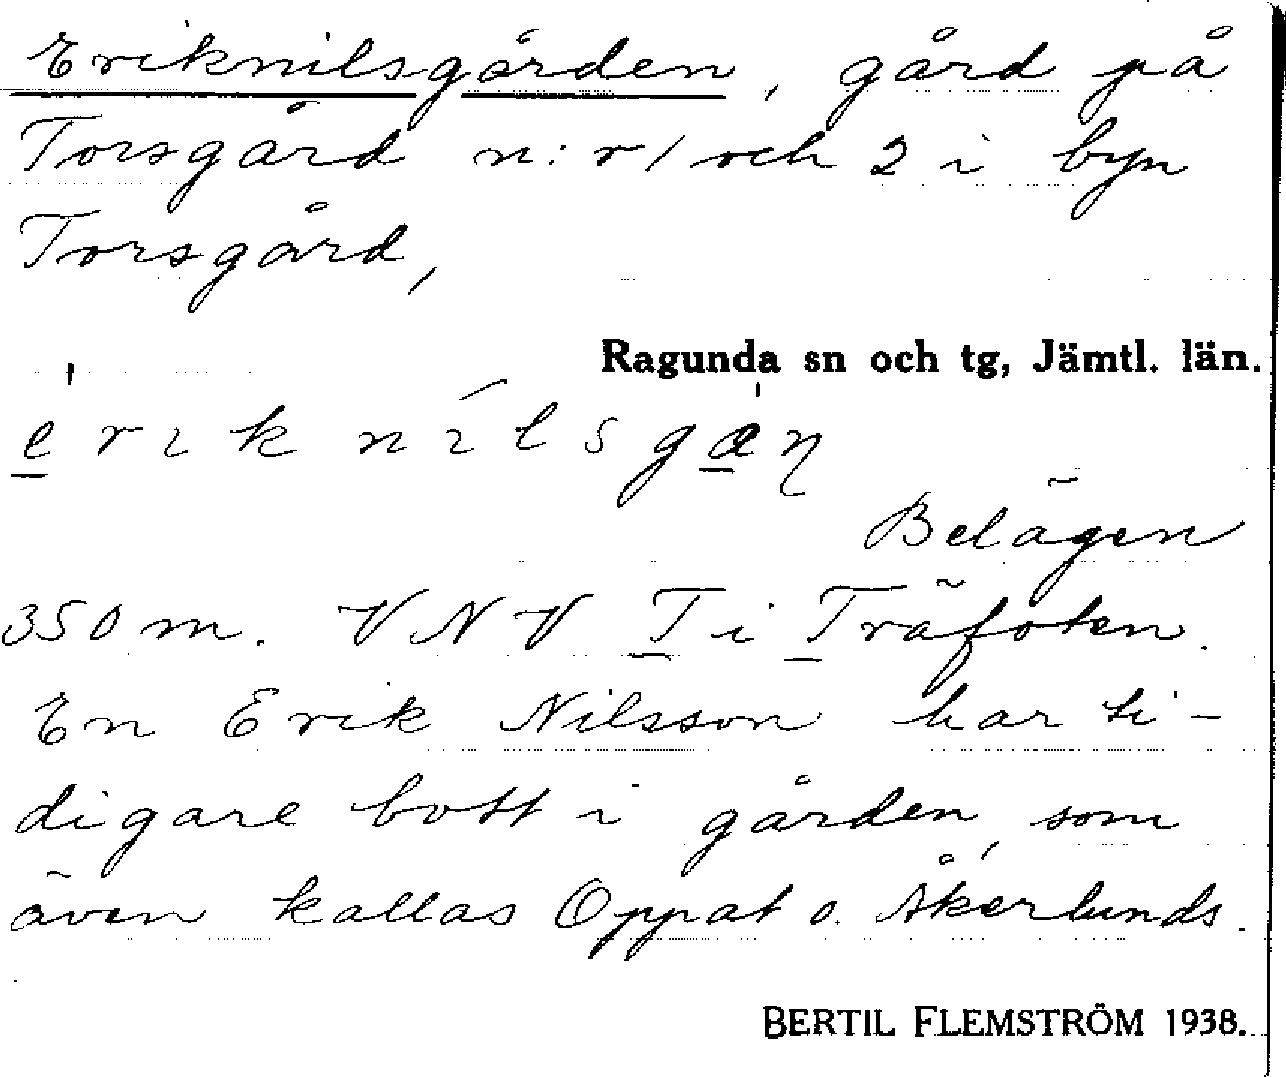 Eriknilsgården, gård på
Torsgård n:r 1 och 2 i byn
Torsgård,
Ragunda sn och tg, Jämtl. län.
Belägen
350 m. VNV T i Träfoten.
En Erik Nilsson har ti-
digare bott i gården, som
även kallas Oppat o. Åkerlunds.
BERTIL FLEMSTRÖM 1938.